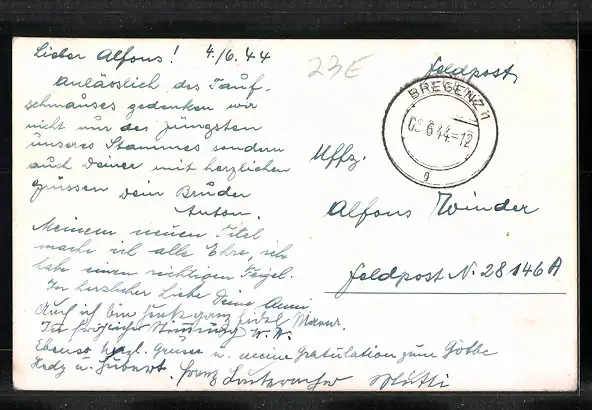 Lieber Alfons! 4./6.44
Anlässlich des Tauf-
schmauses gedenken wir
nicht nur des Jüngsten
unseres Stammes sondern
auch Deiner mit herzlichen
Grüssen Dein Bruder
Anton.
Meinem neuen Titel
mache ich alle Ehre, ich
hab einen richtigen
In herzlicher Liebe Deine Anni
Auch ich bin ganz
In Stimmung W.W.
Ebenso herzl. Grüsse u. meine Gratulation zum
Hedy u. Hubert. Franz Mutti
23E
Feldpost
BREGENZ 11
05.6.44.-12
g
Uffz.
Alfons Winder
Feldpost N. 28146A